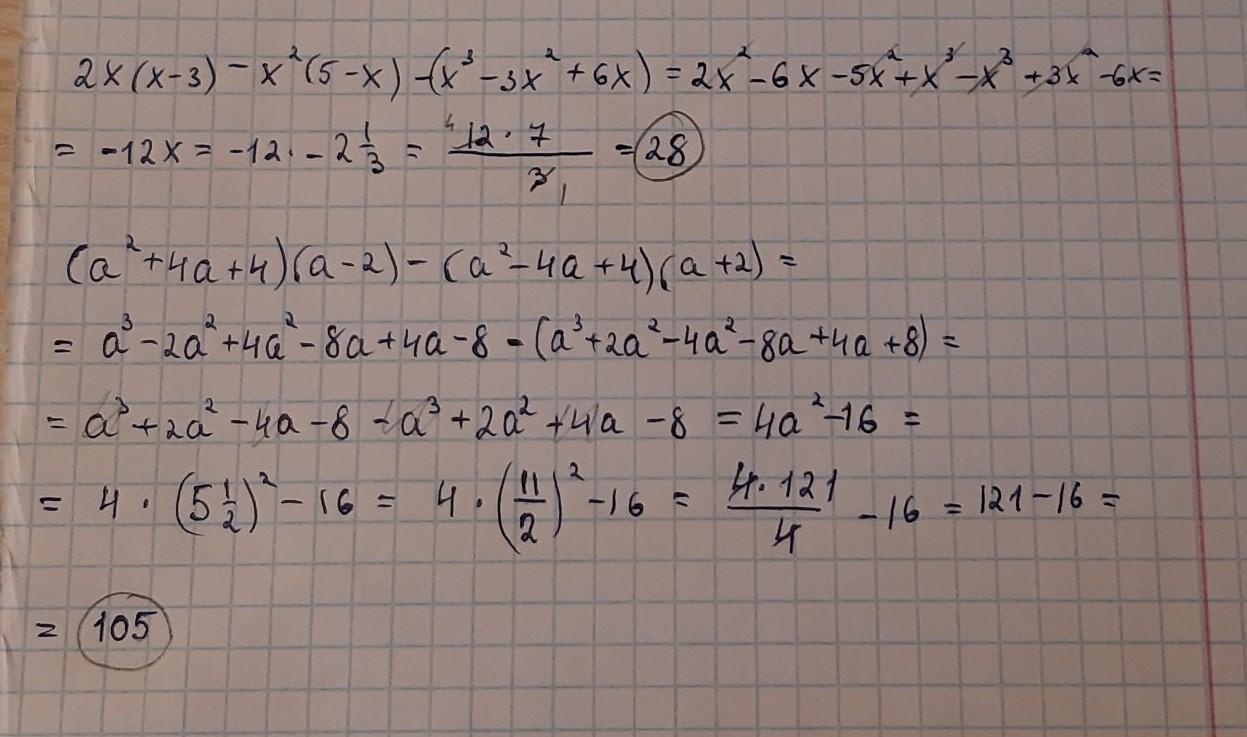 2x(x-3) - x²(5-x) -(x³-3x²+6x) = 2x²-6x-5x²+x³-x³+3x²-6x=
= -12x = -12· -2 1/3 = 12·7/3 = 28
(a²+4a+4)(a-2)-(a²-4a+4)(a+2) =
= a³-2a²+4a²-8a+4a-8-(a³+2a²-4a²-8a+4a+8) =
= a³+2a²-4a-8-a³+2a²+4a-8 = 4a²-16 =
= 4·(5 1/2)²-16 = 4·(11/2)²-16 = 4·121/4 -16 = 121-16 =
= 105